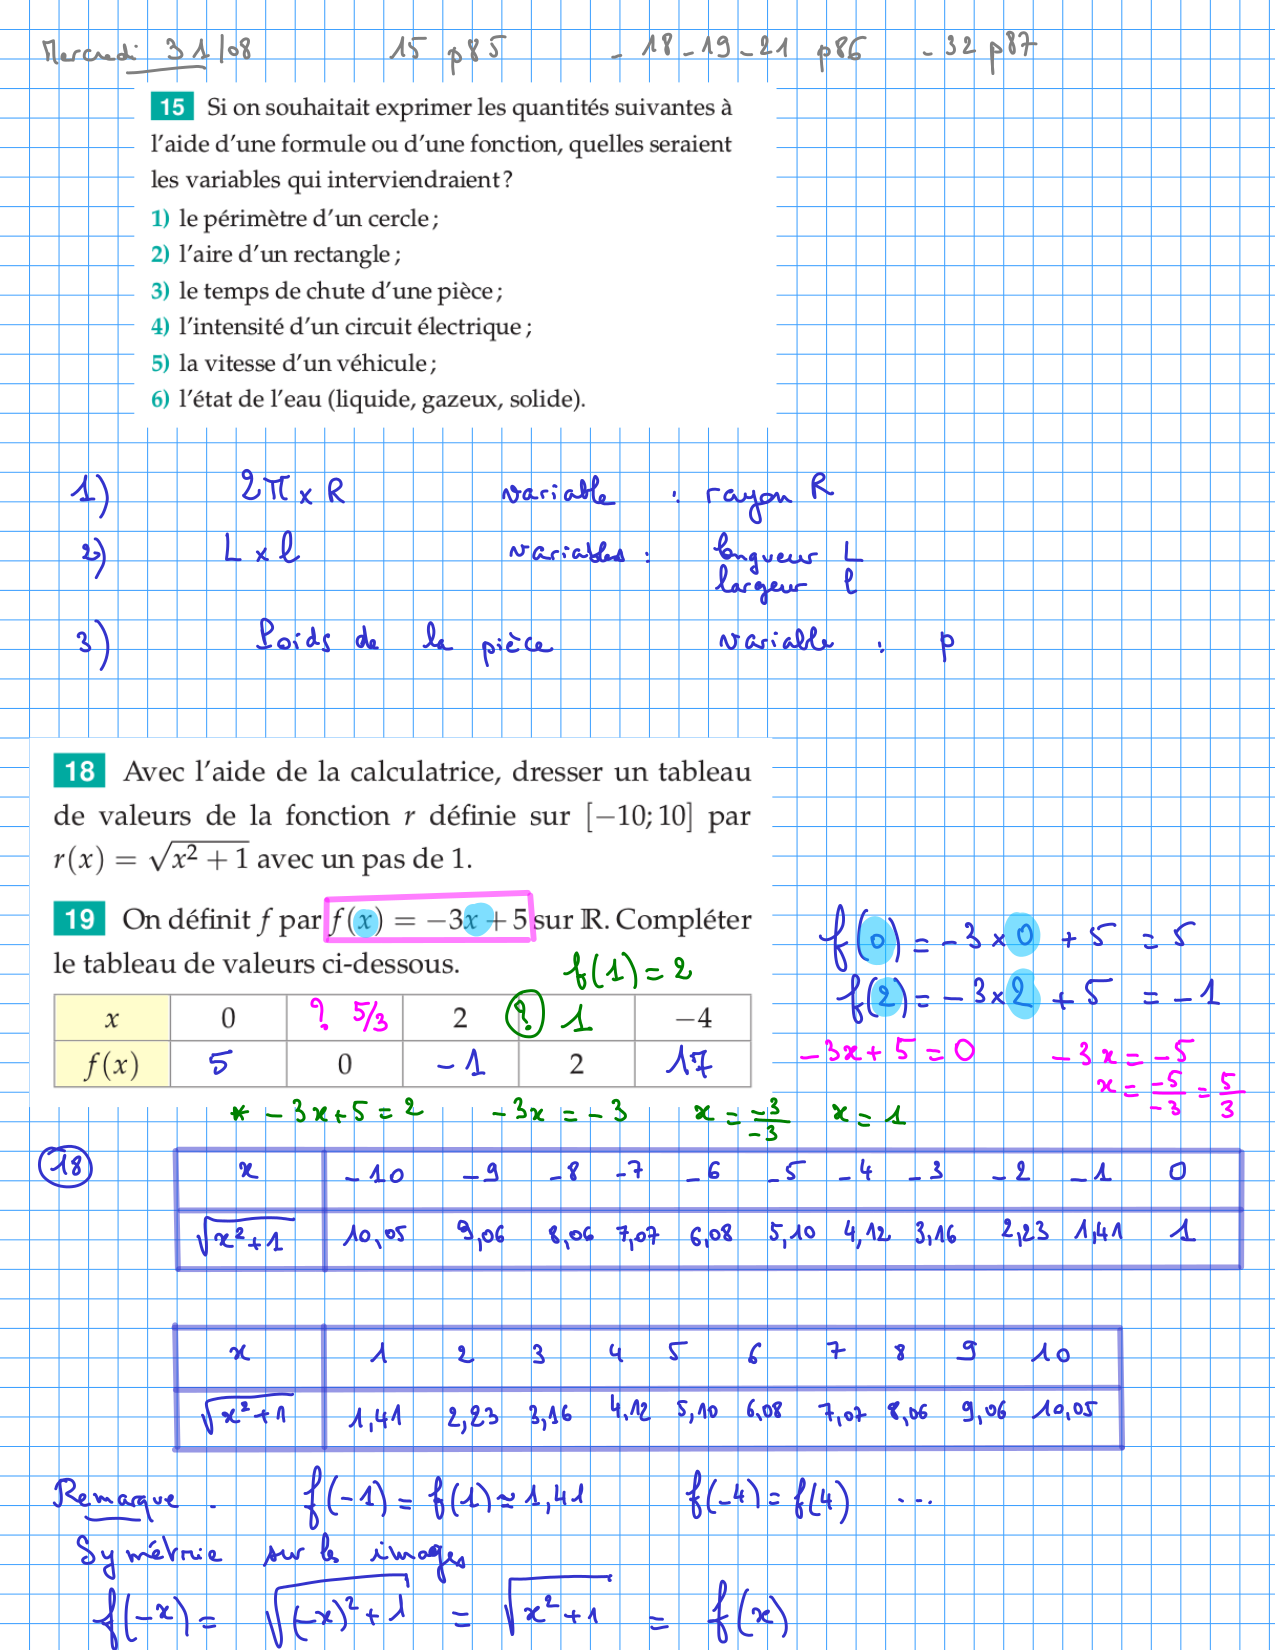 Mercredi 31/08 15 p85 - 18 - 19 - 21 p86 - 32 p87
15 Si on souhaitait exprimer les quantités suivantes à
l'aide d'une formule ou d'une fonction, quelles seraient
les variables qui interviendraient ?
1) le périmètre d'un cercle ;
2) l'aire d'un rectangle ;
3) le temps de chute d'une pièce ;
4) l'intensité d'un circuit électrique ;
5) la vitesse d'un véhicule ;
6) l'état de l'eau (liquide, gazeux, solide).
1) 2π × R variable : rayon R
2) L × l variables : longueur L
largeur l
3) Poids de la pièce variable : p
18 Avec l'aide de la calculatrice, dresser un tableau
de valeurs de la fonction r définie sur [−10; 10] par
r(x) = √(x² + 1) avec un pas de 1.
19 On définit f par f(x) = −3x + 5 sur ℝ. Compléter
le tableau de valeurs ci-dessous.
f(1) = 2
x 0 ? 5/3 2 ? 1 −4
f(x) 5 0 -1 2 17
f(0) = -3 × 0 + 5 = 5
f(2) = -3×2 + 5 = -1
-3x + 5 = 0 -3x = -5
x = -5/-3 = 5/3
* -3x+5 = 2 -3x = -3 x = -3/-3 x = 1
18
x -10 -9 -8 -7 -6 -5 -4 -3 -2 -1 0
√(x²+1) 10,05 9,06 8,06 7,07 6,08 5,10 4,12 3,16 2,23 1,41 1
x 1 2 3 4 5 6 7 8 9 10
√(x²+1) 1,41 2,23 3,16 4,12 5,10 6,08 7,07 8,06 9,06 10,05
Remarque . f(-1) = f(1) ≈ 1,41 f(-4) = f(4) ...
Symétrie sur les images
f(-x) = √((-x)²+1) = √(x²+1) = f(x)